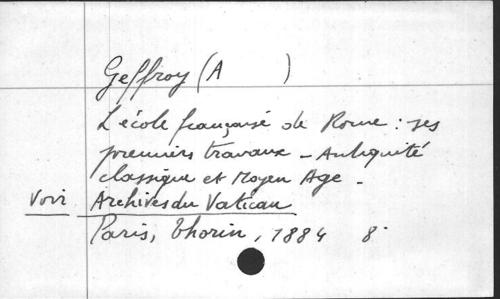 Geffroy (A )
L'école française de Rome : ses
premiers travaux - Antiquité
classique et Moyen Age -
Voir Archives du Vatican
Paris, Thorin, 1884 8°